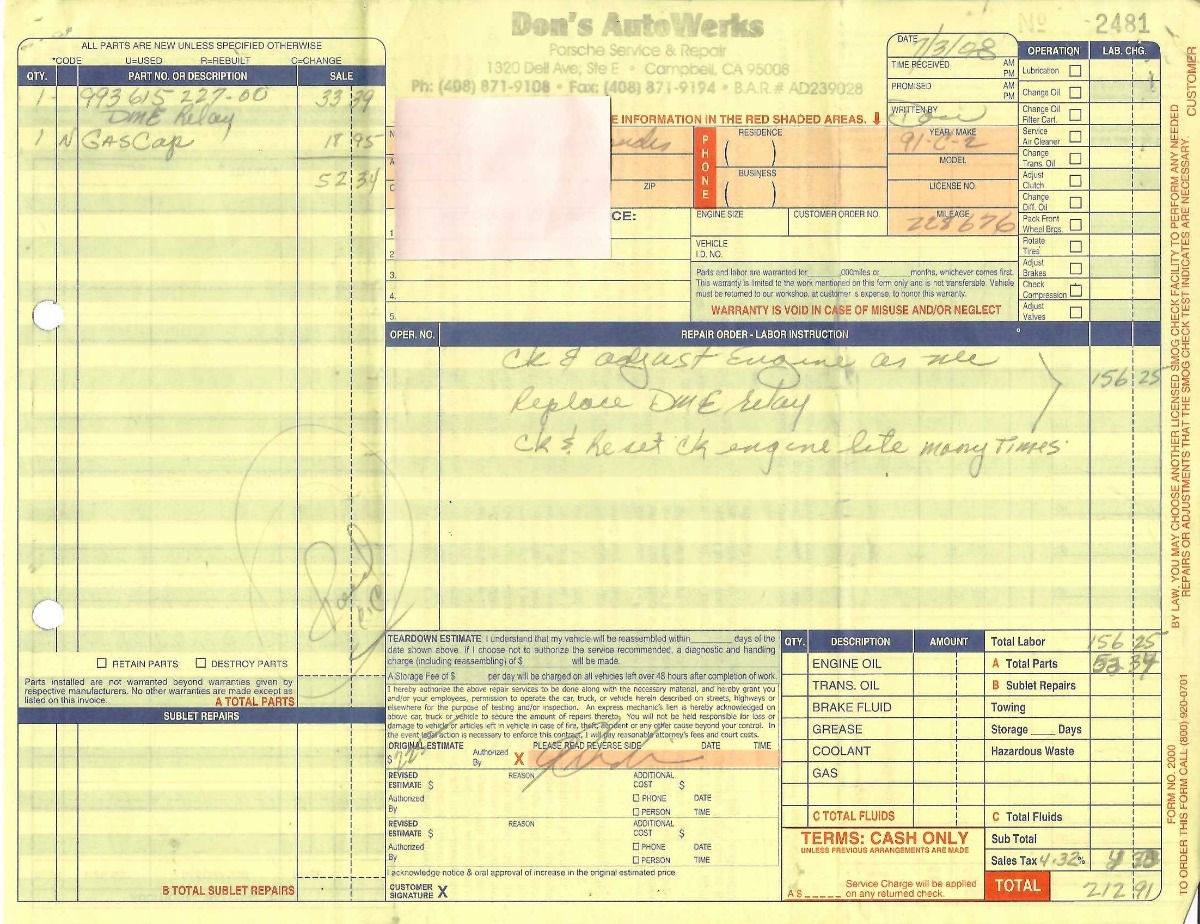 Don's AutoWerks
Porsche Service & Repair
1320 Dell Ave, Ste E • Campbell, CA 95008
Ph: (408) 871-9108 • Fax: (408) 871-9194 • B.A.R.# AD239028
Nº 2481
ALL PARTS ARE NEW UNLESS SPECIFIED OTHERWISE
*CODE U=USED R=REBUILT C=CHANGE
QTY. PART NO. OR DESCRIPTION SALE
1 993 615 227-00 33 39
DME Relay
1 N GAS Cap 18 95
52 34
RETAIN PARTS DESTROY PARTS
Parts installed are not warranted beyond warranties given by
respective manufacturers. No other warranties are made except as
listed on this invoice.
A TOTAL PARTS
SUBLET REPAIRS
B TOTAL SUBLET REPAIRS
Paid
E INFORMATION IN THE RED SHADED AREAS.
ZIP
CE:
1
2
3.
4.
5.
PHONE
RESIDENCE
( )
BUSINESS
( )
DATE 7/3/08
TIME RECEIVED AM PM
PROMISED AM PM
WRITTEN BY
YEAR/MAKE
91-C-2
MODEL
LICENSE NO.
MILEAGE
228676
ENGINE SIZE CUSTOMER ORDER NO.
VEHICLE
I.D. NO.
Parts and labor are warranted for ______,000miles or ______ months, whichever comes first.
This warranty is limited to the work mentioned on this form only and is not transferable. Vehicle
must be returned to our workshop, at customer is expense, to honor this warranty.
WARRANTY IS VOID IN CASE OF MISUSE AND/OR NEGLECT
OPERATION LAB. CHG.
Lubrication
Change Oil
Change Oil
Filter Cart.
Service
Air Cleaner
Change
Trans. Oil
Adjust
Clutch
Change
Diff. Oil
Pack Front
Wheel Brgs.
Rotate
Tires
Adjust
Brakes
Check
Compression
Adjust
Valves
OPER. NO. REPAIR ORDER - LABOR INSTRUCTION
Ck & adjust Engine as nec 156 25
Replace DME relay
Ck & Reset Ck engine lite many Times
TEARDOWN ESTIMATE I understand that my vehicle will be reassembled within________ days of the
date shown above. If I choose not to authorize the service recommended, a diagnostic and handling
charge (including reassembling) of $ will be made.
A Storage Fee of $ per day will be charged on all vehicles left over 48 hours after completion of work.
I hereby authorize the above repair services to be done along with the necessary material, and hereby grant you
and/or your employees, permission to operate the car, truck, or vehicle herein described on streets, highways or
elsewhere for the purpose of testing and/or inspection. An express mechanic's lien is hereby acknowledged on
above car, truck or vehicle to secure the amount of repairs thereto. You will not be held responsible for loss or
damage to vehicle or articles left in vehicle in case of fire, theft, accident or any other cause beyond your control. In
the event legal action is necessary to enforce this contract, I will pay reasonable attorney's fees and court costs.
ORIGINAL ESTIMATE Authorized By X PLEASE READ REVERSE SIDE DATE TIME
$
REVISED ESTIMATE $ REASON ADDITIONAL COST $
Authorized By PHONE DATE
PERSON TIME
REVISED ESTIMATE $ REASON ADDITIONAL COST $
Authorized By PHONE DATE
PERSON TIME
I acknowledge notice & oral approval of increase in the original estimated price.
CUSTOMER SIGNATURE X
QTY. DESCRIPTION AMOUNT
ENGINE OIL
TRANS. OIL
BRAKE FLUID
GREASE
COOLANT
GAS
C TOTAL FLUIDS
TERMS: CASH ONLY
UNLESS PREVIOUS ARRANGEMENTS ARE MADE
A'S ______ Service Charge will be applied
on any returned check.
Total Labor 156 25
A Total Parts 52 34
B Sublet Repairs
Towing
Storage ____ Days
Hazardous Waste
C Total Fluids
Sub Total
Sales Tax 4.32%
TOTAL 212 91
BY LAW, YOU MAY CHOOSE ANOTHER LICENSED SMOG CHECK FACILITY TO PERFORM ANY NEEDED
REPAIRS OR ADJUSTMENTS THAT THE SMOG CHECK TEST INDICATES ARE NECESSARY.
CUSTOMER
FORM NO. 2000
TO ORDER THIS FORM CALL (800) 920-0701